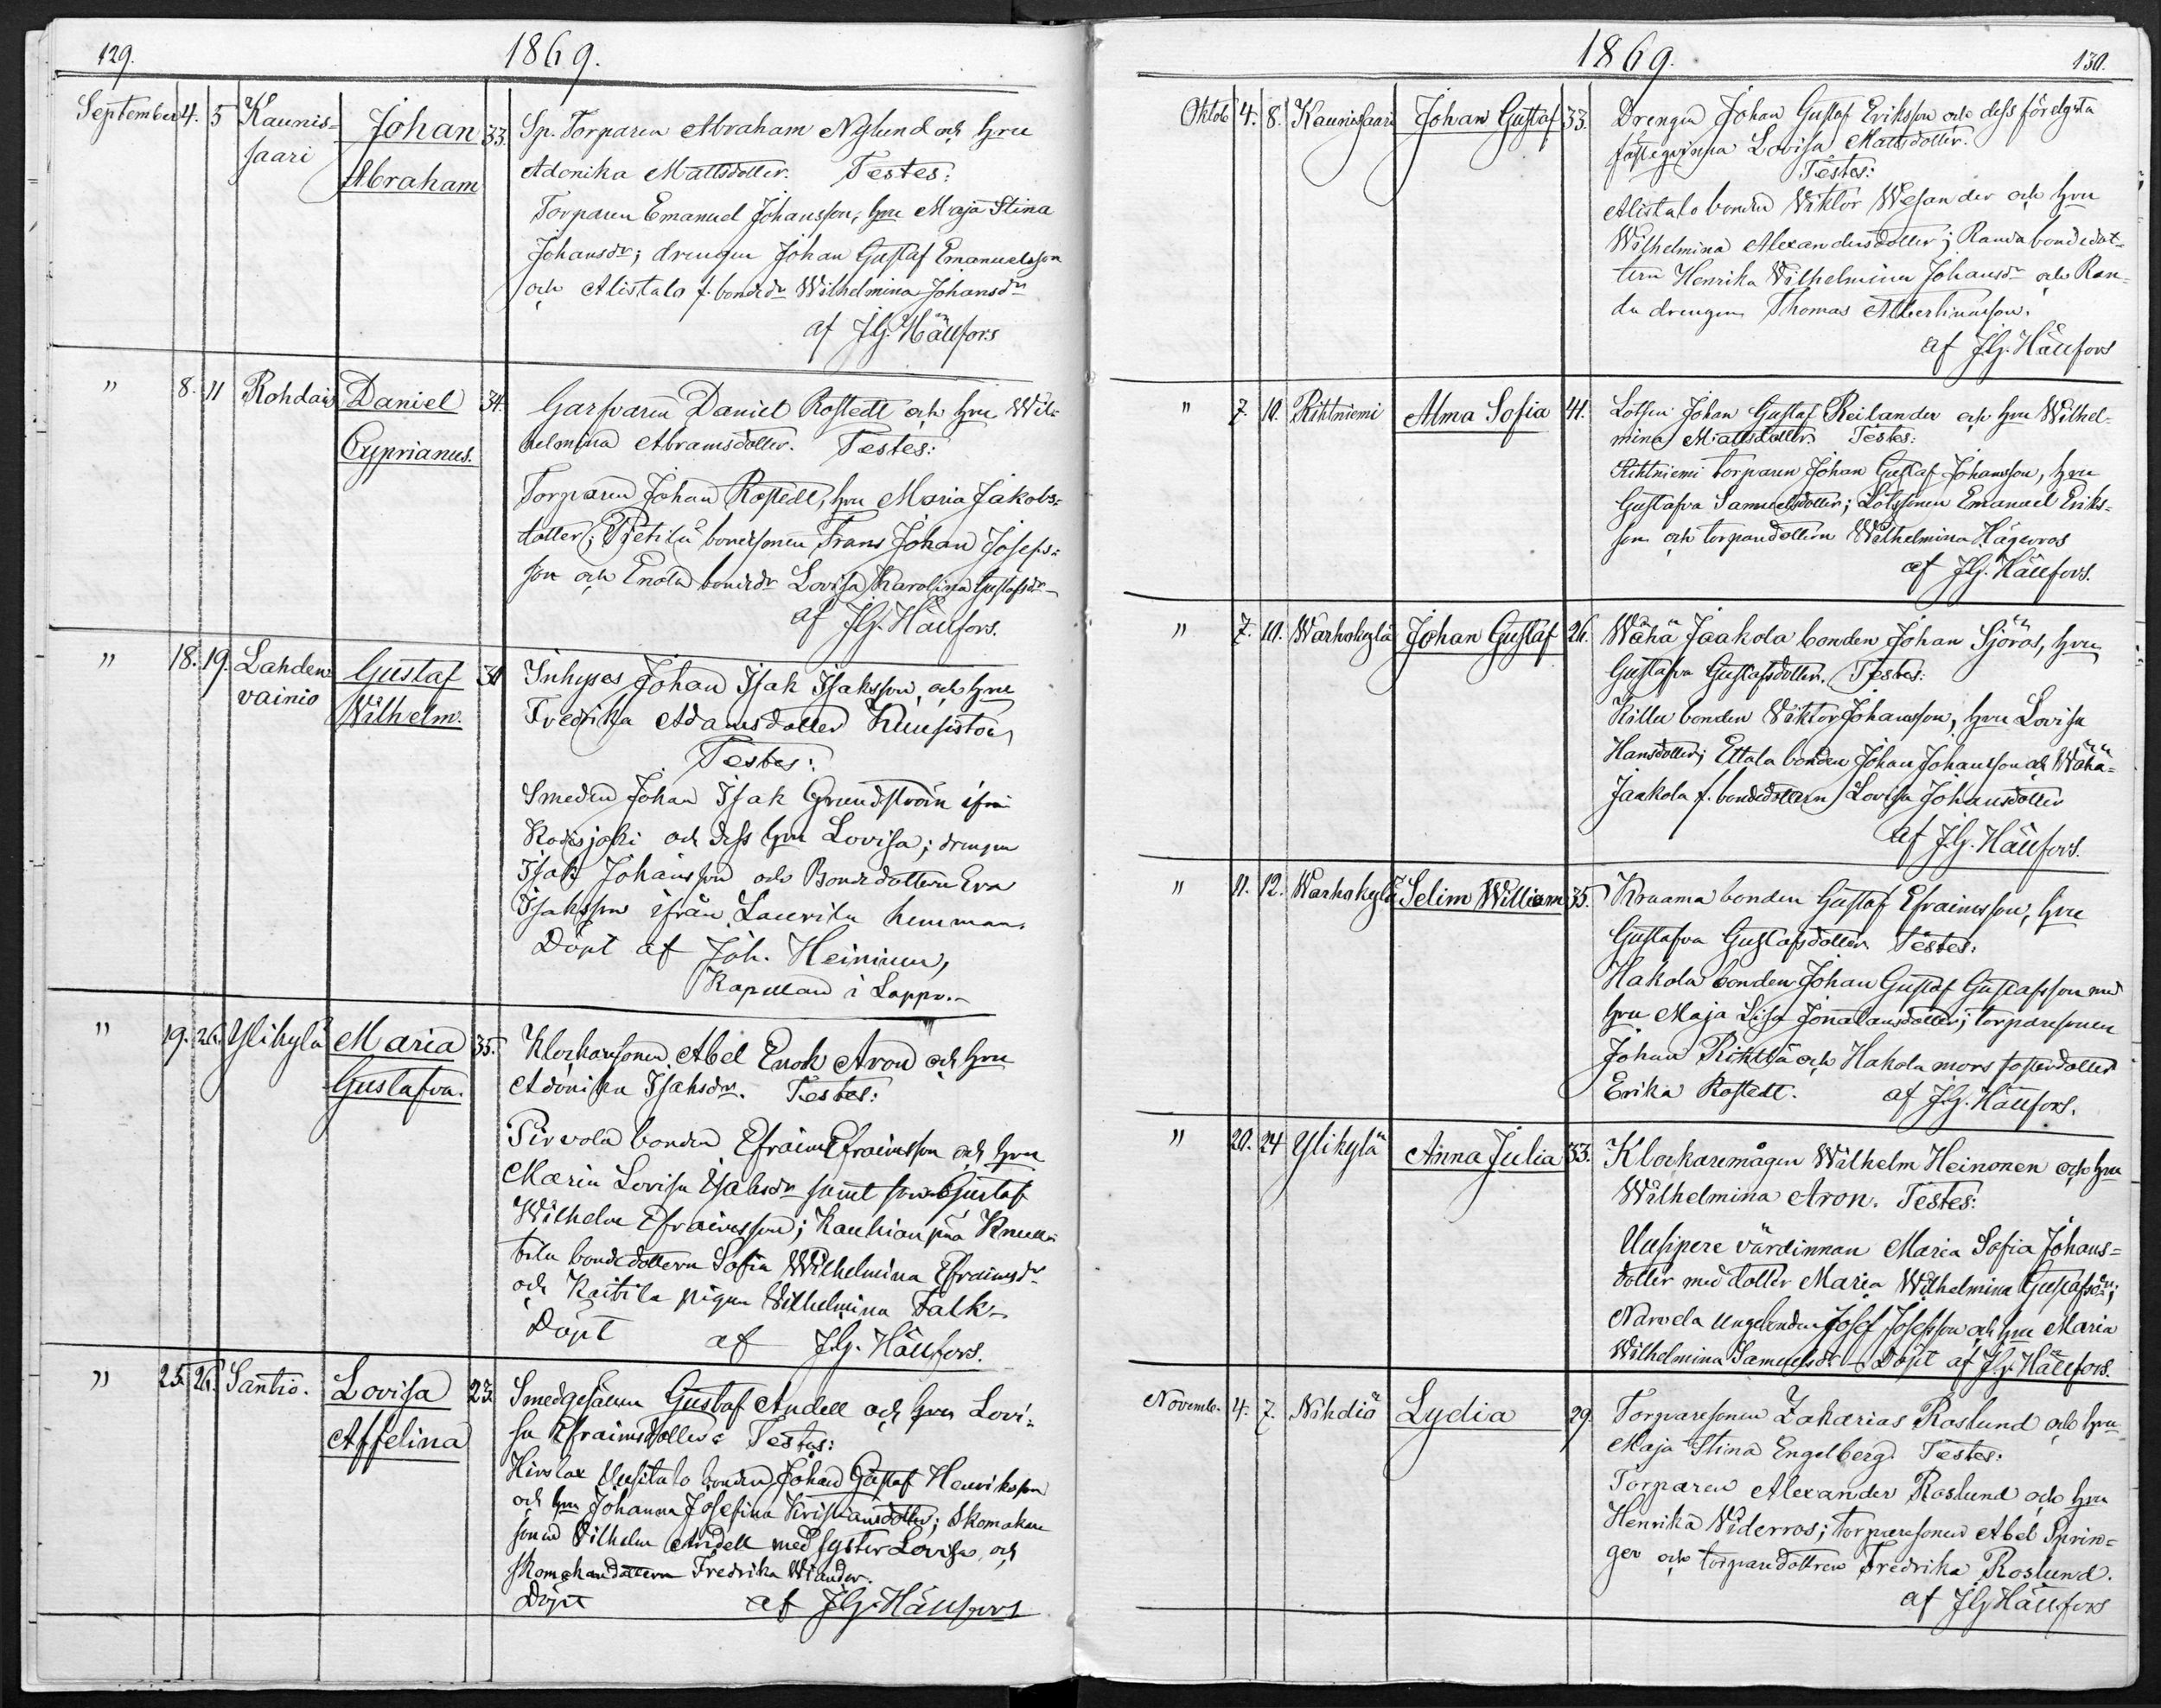 129.
1869.
September 4. 5 Kaunis= Johan 33. Sp. Torparen Abraham Nylund och hru
saari Abraham Adonika Mattsdotter. Testes:
Torparen Emanuel Johansson, hru Maja Stina
Johansdr; drengen Johan Gustaf Emanuelsson
och Alistalo f. bondedr Wilhelmina Johansdr
af JG. Hällfors
" 8. 11 Rohdais Daniel 34. Garfvaren Daniel Rostedt och hru Wil=
Cyprianus. helmina Abramsdotter. Testes:
Torparen Johan Rostedt, hru Maria Jakobs=
dotter; Pietilä bondsonen Frans Johan Josefs=
son och Enola bondedr Lovisa Karolina Gustafsdr
af JG. Hällfors.
" 18. 19. Lahden Gustaf Inhyses Johan Isak Isaksson, och hru
vainio Wilhelm. Fredrika Adamsdotter
Testes:
Smeden Johan Isak Grundström ifrån
Kodisjoki och dess hru Lovisa; drengen
Isak Johansson och Bondedottern Eva
Isaksson ifrån Laurila hemman.
Döpt af Joh. Heininen,
Kapellan i Lappo.
" 19. 26. Ylikylä Maria 35. Klockarsonen Abel Enok Aron och hru
Gustafva. Adonika Isaksdr. Testes:
Pirvola bonden Efraim Efraimsson och hru
Maria Lovisa Isaksdr samt son Gustaf
Wilhelm Efraimsson; Kauhianpää
tila bondedottern Sofia Wilhelmina Efraimsdr
och Kaitila pigan Wilhelmina Falk
Döpt af JG. Hällfors.
" 25. 26. Santio. Lovisa 23. Smedgesällen Gustaf Andell och hru Lovi=
Affelina sa Efraimsdotter. Testes:
Hirslax Uusitalo bonden Johan Gustaf Henriksson
och hru Johanna Josefina Kristiansdotter; Skomakare
sonen Vilhelm Andell med syster Lovisa, och
skomakaredottern Fredrika Wiander.
Döpt af JG. Hällfors
1869.
130.
Oktob 4. 8. Kaunissaari Johan Gustaf 33. Drengen Johan Gustaf Eriksson och dess förelgsta
fästeqvinna Lovisa Mattsdotter.
Testes:
Alistalo bonden Viktor Wesander och hru
Wilhelmina Alexandersdotter; Randa bondedot=
tern Henrika Wilhelmina Johansdr och Ran=
da drengen Thomas
af JG. Hällfors
" 7. 10. Rihtniemi Alma Sofia 41. Lotsen Johan Gustaf Reilander och hru Wilhel=
mina Mattsdotter. Testes:
Rihtniemi torparen Johan Gustaf Johansson, hru
Gustafva Samuelsdotter; Lotssonen Emanuel Eriks=
son och torparedottern Wilhelmina Hägerros
af JG. Hällfors.
" 7. 10. Warhokylä Johan Gustaf 26. Wähä Jaakola bonden Johan Sjöros, hru
Gustafva Gustafsdotter. Testes:
Killu bonden Viktor Johansson, hru Lovisa
Hansdotter; Ettala bonden Johan Johansson och Wähä=
Jaakola f. bondedottern Lovisa Johansdotter
af J.G. Hällfors.
" 11. 12. Warhokylä Selim William 35. Kraama bonden Gustaf Efraimsson, hru
Gustafva Gustafsdotter. Testes:
Hakola bonden Johan Gustaf Gustafsson med
hru Maja Lisa Jonatansdotter; torparesonen
Johan Rihtlä och Hakola mors fosterdotter
Erika Rostedt. af J.G. Hällfors.
" 20. 24 Ylikylä Anna Julia 33. Klockaremågen Wilhelm Heinonen och hru
Wilhelmina Aron. Testes:
Uusipere värdinnan Maria Sofia Johans=
dotter med dotter Maria Wilhelmina Gustafsdr;
Narvela ungbonden Josef Josefsson och hru Maria
Wilhelmina Samuelsdr Döpt af J.G. Hällfors.
Novemb. 4. 7. Nihdiö Lydia 29. Torparesonen Zakarias Roslund och hru
Maja Stina Engelberg. Testes:
Torparen Alexander Roslund och hru
Henrika Widerros; torparesonen Abel Sprin=
ger och torparedottren Fredrika Roslund.
af JG Hällfors